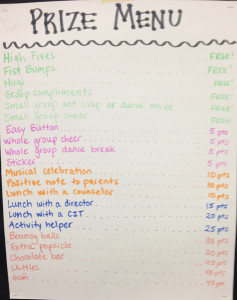 PRIZE MENU
High Fives FREE!
Fist Bumps FREE!
Hugs FREE!
Group compliments FREE!
Small group ant clap or dance move FREE!
Small Group cheer FREE!
Easy Button 5 pts
Whole group cheer 5 pts
Whole group dance break 5 pts
Sticker 5 pts
Musical celebration 10 pts
Positive note to parents 10 pts
Lunch with a counselor 10 pts
Lunch with a director 15 pts
Lunch with a CIT 20 pts
Activity helper 25 pts
Bouncy balls pts
Extra popsicle pts
Chocolate bar pts
Skittles pts
Gum pts